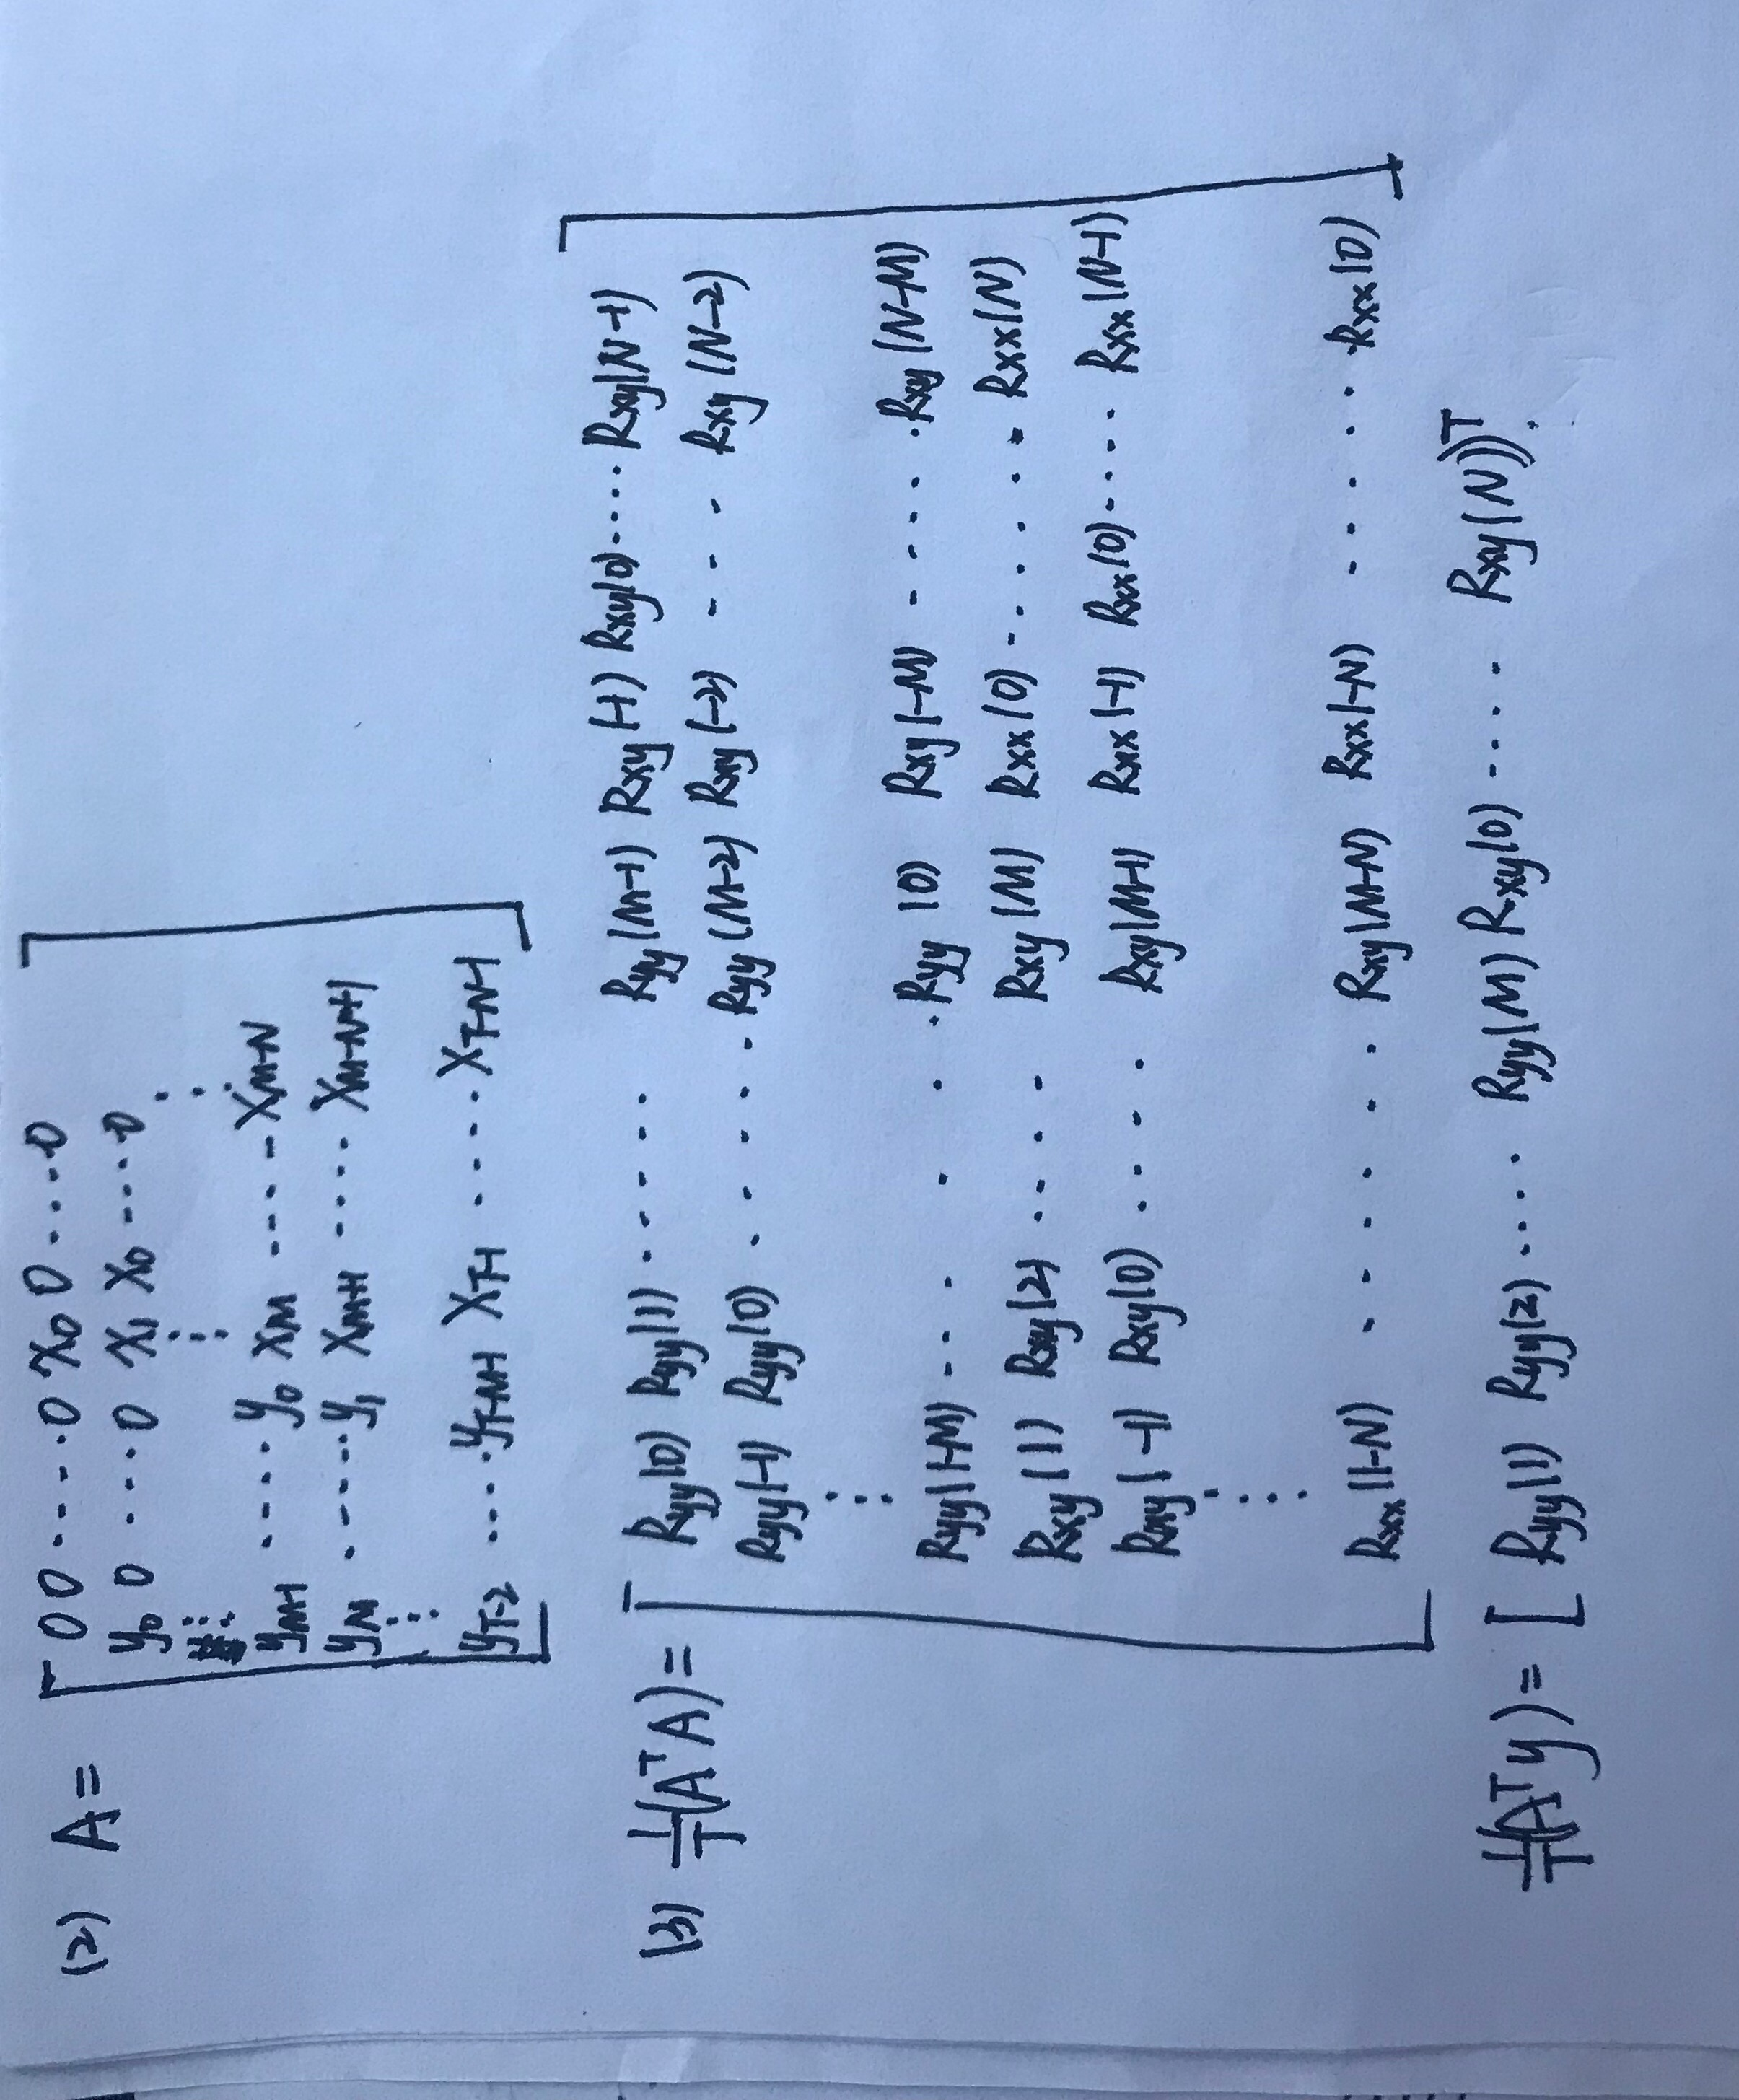 (2) A =
0 0 ····0 x₀ 0 ····0
y₀ 0 ····0 x₁ x₀ ····0
⋮ ⋮ ⋱
y_{M-1} ·····y₀ x_M ····· x_{M-N}
y_M ·····y₁ x_{M+1} ···· x_{M-N+1}
⋮
y_{T-2} ····y_{T-M-1} x_{T-1} ····· x_{T-N-1}
(3) 1/T(AᵀA) =
Ryy(0) Ryy(1) ····· Ryy(M-1) Rxy(-1) Rxy(0)···· Rxy(N-1)
Ryy(-1) Ryy(0) ····· Ryy(M-2) Rxy(-2) ··· Rxy(N-2)
⋮
Ryy(1-M) ······ Ryy(0) Rxy(-M) ····· Rxy(N-M)
Rxy(1) Rxy(2) ···· Rxy(M) Rxx(0) ······ Rxx(N)
Rxy(-1) Rxy(0) ···· Rxy(M-1) Rxx(-1) Rxx(0)···· Rxx(N-1)
⋮
Rxx(1-N) ······ Rxy(M-N) Rxx(-N) ····· Rxx(0)
1/T(Aᵀy) = [ Ryy(1) Ryy(2) ···· Ryy(M) Rxy(0) ···· Rxy(N))ᵀ.